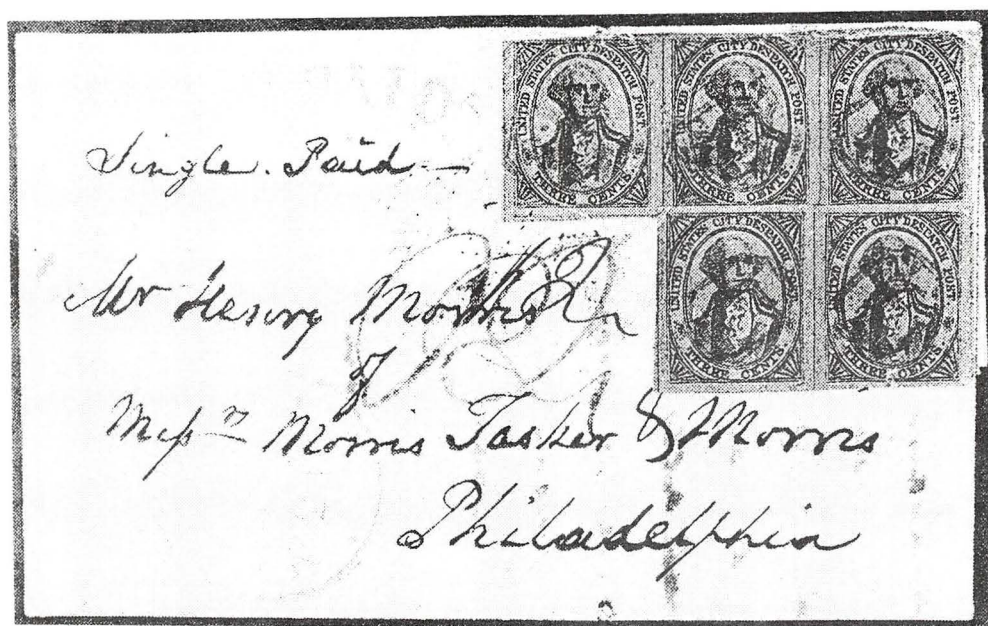 UNITED STATES CITY DESPATCH POST
THREE CENTS
UNITED STATES CITY DESPATCH POST
THREE CENTS
UNITED STATES CITY DESPATCH POST
THREE CENTS
Single. Paid —
UNITED STATES CITY DESPATCH POST
THREE CENTS
UNITED STATES CITY DESPATCH POST
THREE CENTS
Mr Henry Morris
of
Messrs Morris Tasker & Morris
Philadelphia